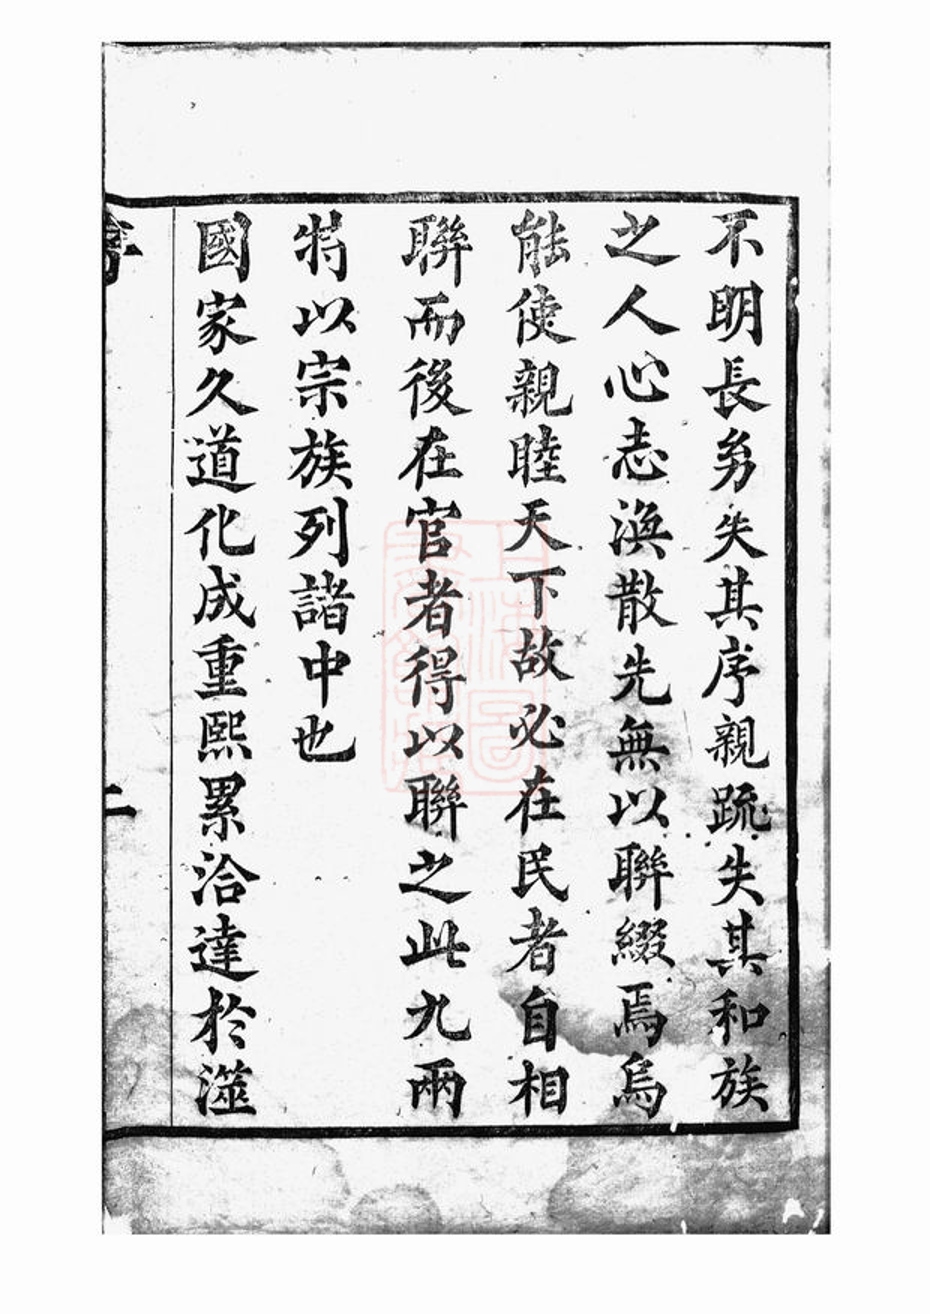 不明長㓜失其序親疏失其和族
之人心志渙散先無以聯綴焉烏
能使親睦天下故必在民者自相
聯而後在官者得以聯之此九兩
特以宗族列諸中也
國家久道化成重熙累洽達於澨
序
二
上海圖書館藏